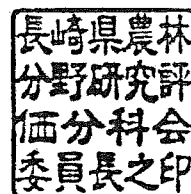 長崎県農林
分野研究評
価分科会
委員長之印